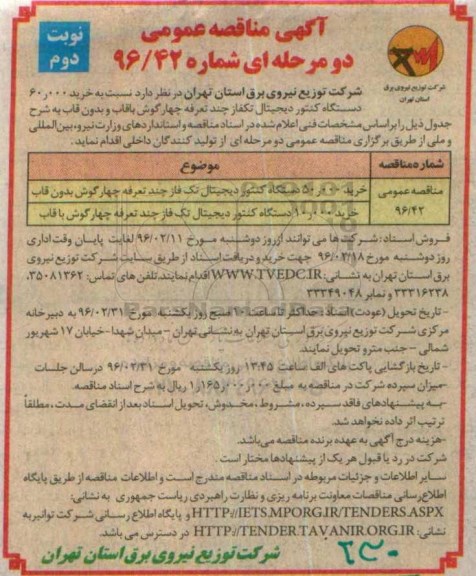 آگهی مناقصه عمومی
دو مرحله ای شماره ۹۶/۴۲
نوبت
دوم
شرکت توزیع نیروی برق
استان تهران
شرکت توزیع نیروی برق استان تهران در نظر دارد نسبت به خرید ۶۰٫۰۰۰
دستگاه کنتور دیجیتال تکفاز چند تعرفه چهار گوش باقاب و بدون قاب به شرح
جدول ذیل را براساس مشخصات فنی اعلام شده در اسناد مناقصه و استانداردهای وزارت نیرو، بین المللی
و ملی از طریق برگزاری مناقصه عمومی دو مرحله ای از تولید کنندگان داخلی اقدام نماید.
شماره مناقصه
موضوع
مناقصه عمومی
۹۶/۴۲
خرید ۵۰٫۰۰۰ دستگاه کنتور دیجیتال تک فاز چند تعرفه چهار گوش بدون قاب
خرید ۱۰٫۰۰۰ دستگاه کنتور دیجیتال تک فاز چند تعرفه چهار گوش با قاب
فروش اسناد: شرکت ها می توانند از روز دوشنبه مورخ ۹۶/۰۲/۱۱ لغایت پایان وقت اداری
روز دوشنبه مورخ ۹۶/۰۲/۱۸ جهت خرید و دریافت اسناد از طریق سایت شرکت توزیع نیروی
برق استان تهران به نشانی: WWW.TVEDC.IR اقدام نمایند. تلفن های تماس: ۳۵۰۸۱۳۶۲،
۳۳۳۱۶۲۳۸ و نمابر ۳۳۳۴۹۰۴۸
- تاریخ تحویل (عودت) اسناد: حداکثر تا ساعت ۱۰ صبح روز یکشنبه مورخ ۹۶/۰۲/۳۱ به دبیرخانه
مرکزی شرکت توزیع نیروی برق استان تهران به نشانی تهران - میدان شهدا - خیابان ۱۷ شهریور
شمالی - جنب مترو تحویل نمایند.
- تاریخ بازگشایی پاکت های الف ساعت ۱۳:۴۵ روز یکشنبه مورخ ۹۶/۰۲/۳۱ در سالن جلسات
-میزان سپرده شرکت در مناقصه به مبلغ ۱٫۱۶۵٫۰۰۰٫۰۰۰ ریال به شرح اسناد مناقصه.
-به پیشنهادهای فاقد سپرده، مشروط، مخدوش، تحویل اسناد بعد از انقضای مدت، مطلقاً
ترتیب اثر داده نخواهد شد.
-هزینه درج آگهی به عهده برنده مناقصه می باشد.
شرکت در رد یا قبول هر یک از پیشنهادها مختار است.
سایر اطلاعات و جزئیات مربوطه در اسناد مناقصه مندرج است و اطلاعات مناقصه از طریق پایگاه
اطلاع رسانی مناقصات معاونت برنامه ریزی و نظارت راهبردی ریاست جمهوری به نشانی:
HTTP://IETS.MPORG.IR/TENDERS.ASPX و پایگاه اطلاع رسانی شرکت توانیر به
نشانی: HTTP://TENDER.TAVANIR.ORG.IR در دسترس می باشد.
شرکت توزیع نیروی برق استان تهران